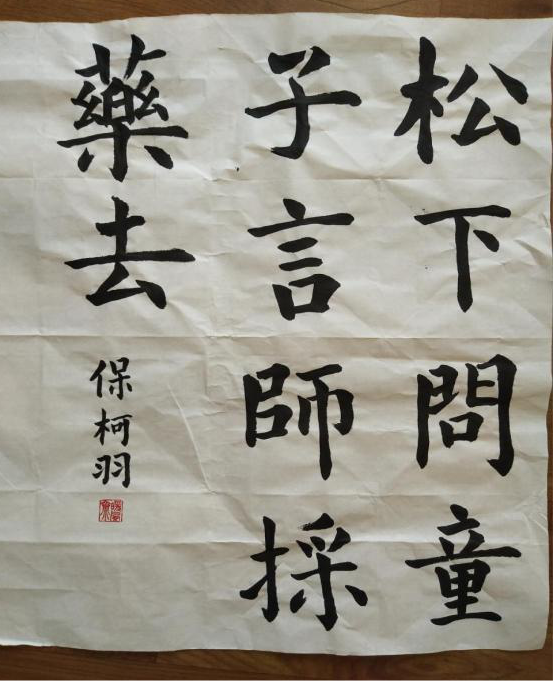 松下問童
子言師採
藥去
保柯羽